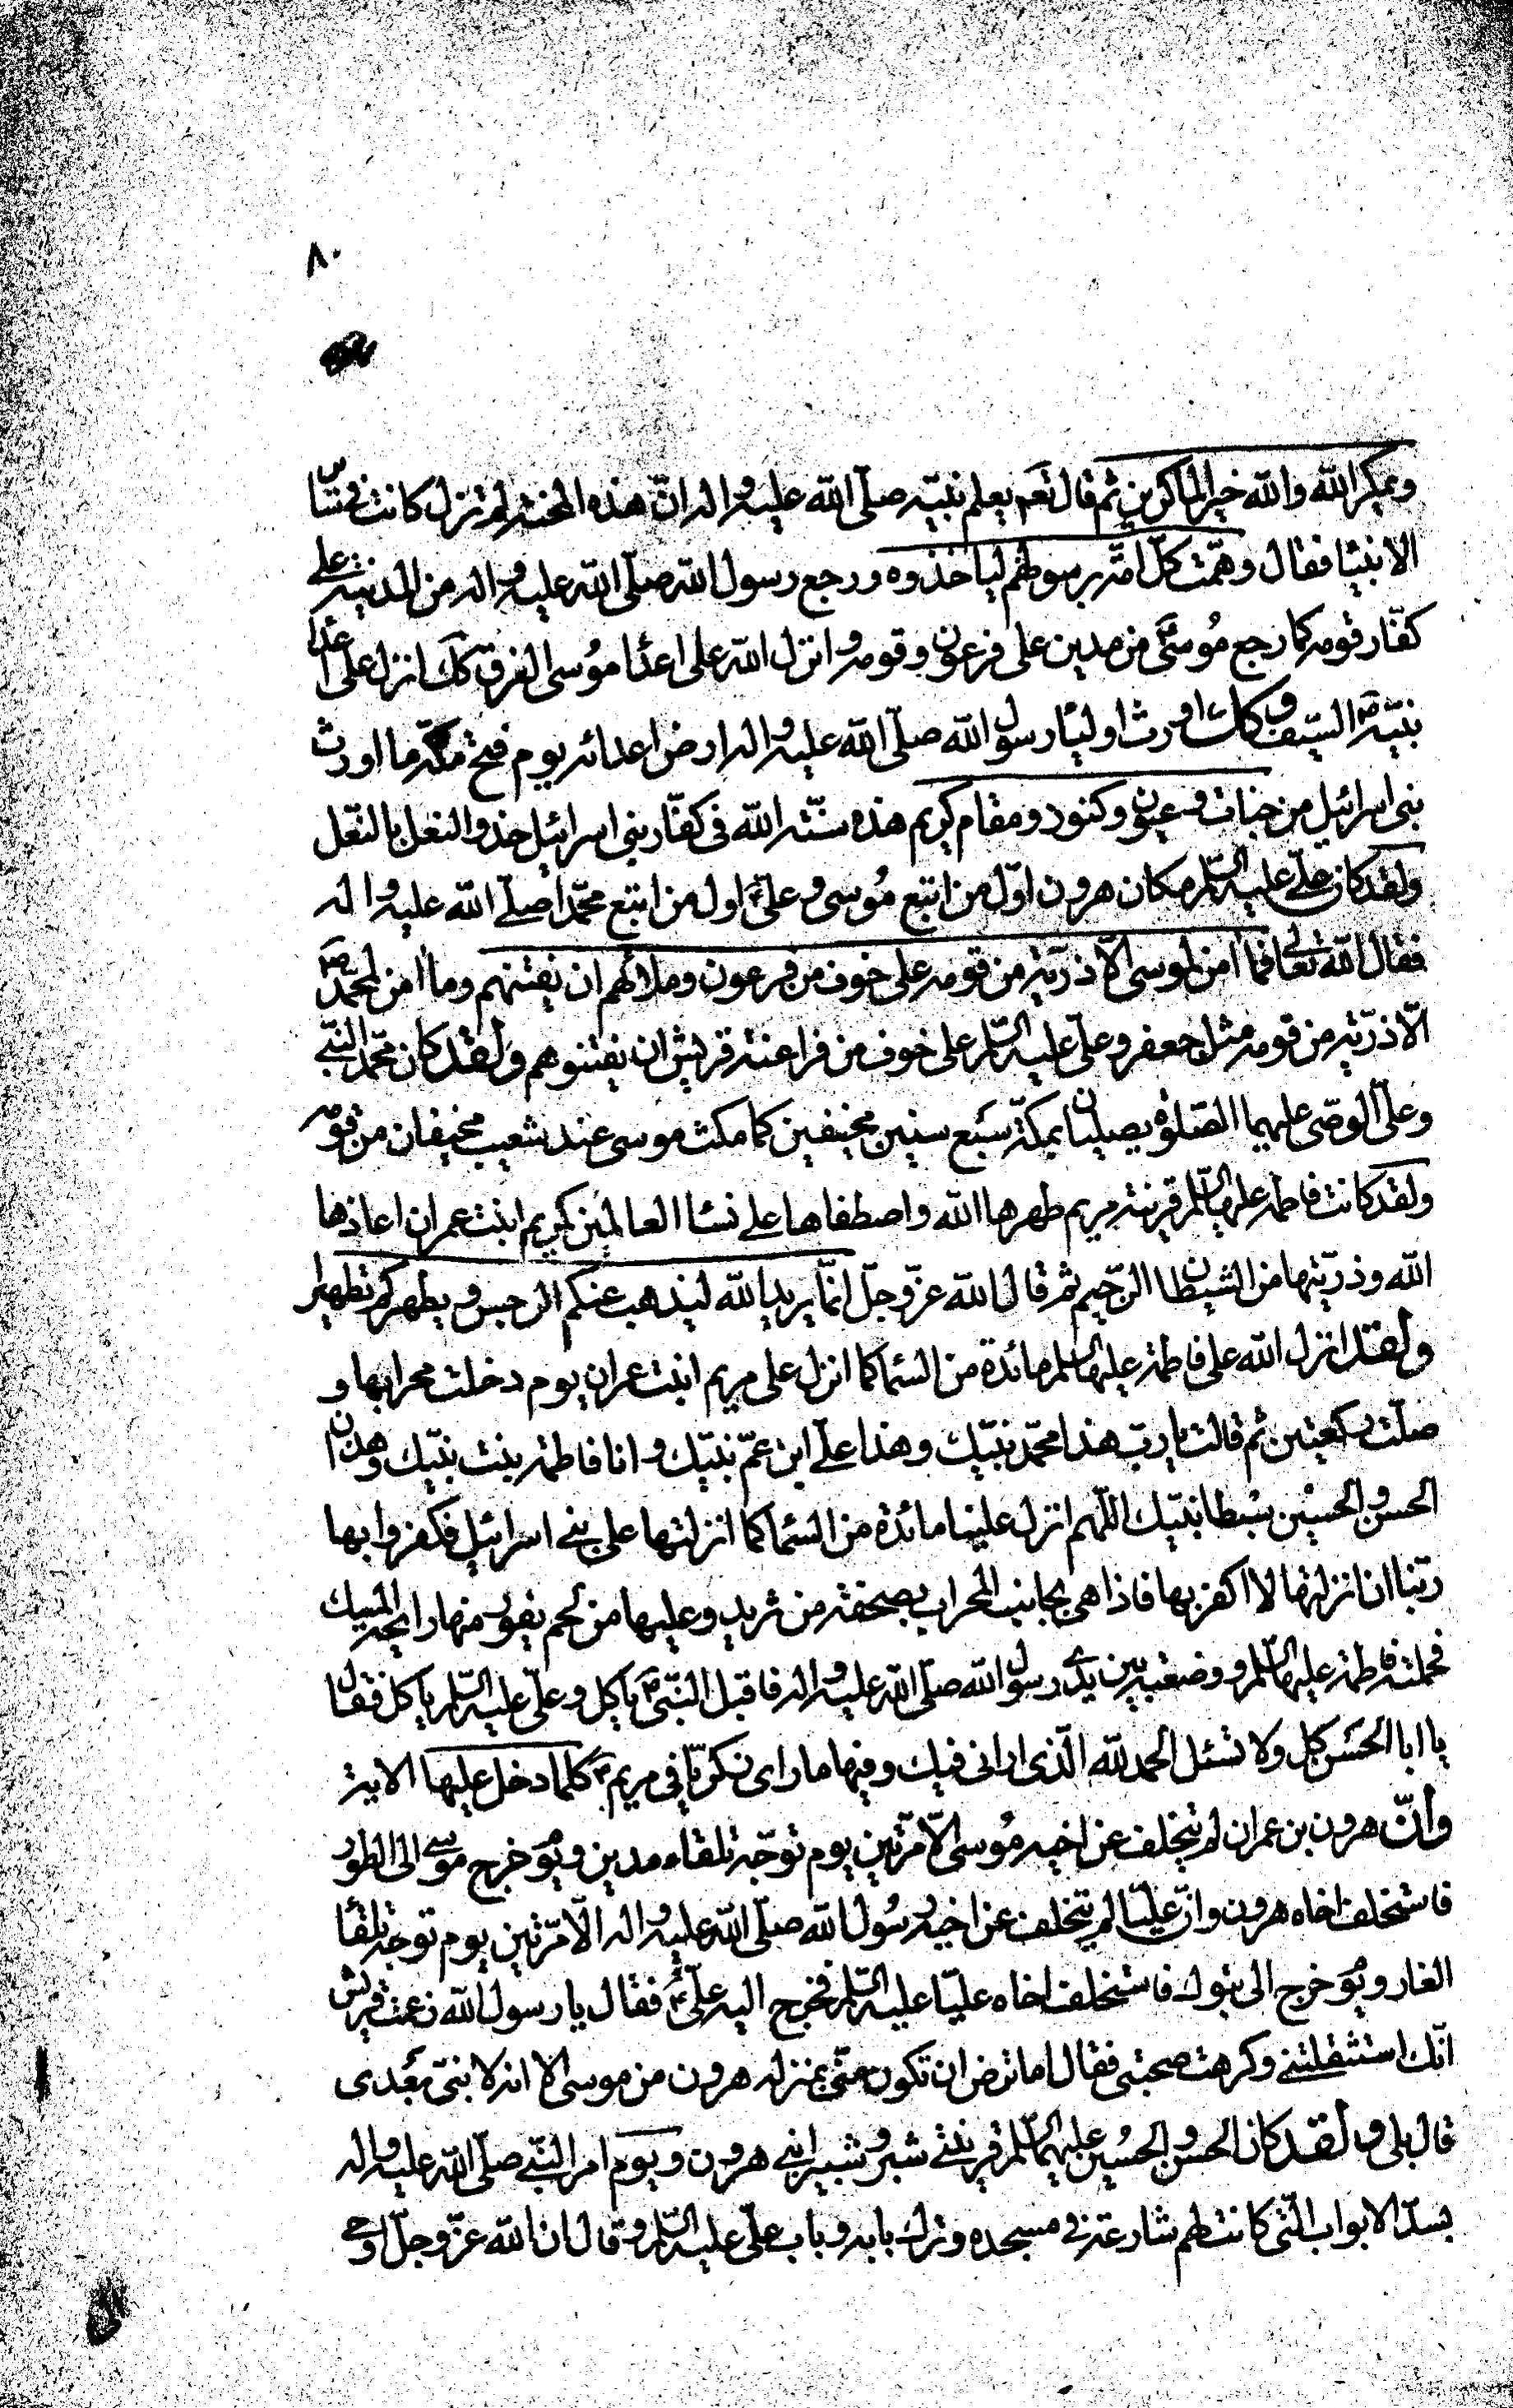 ٨٠
ويمكر الله والله خير الماكرين ثم قال نعم يعلم نبيّه صلّى الله عليه واله انّ هذه المحنة لم تزل كانت في سنن
الانبيا فقال وهمّت كلّ امّة برسولهم لياخذوه ورجع رسول الله صلّى الله عليه واله من المدينة على
كفّار قومه كما رجع مُوسىٰ من مدين على فرعون وقومه وانزل الله على اعدا مُوسى الغرق كك انزل على اعدا
نبيّه السّيف وكان اورث اوليا رسول الله صلّى الله عليه واله ارض اعدائه يوم فتح مكّة ما اورث
بنى اسرائيل من جنات وعيون وكنوز ومقام كريم هذه سنّة الله في كفّار بنى اسرائيل حذو النعل بالنّعل
ولقد كان علىّ عليه السّلم مكان هرون اوّل من اتبع مُوسى وعلىّ اول من اتبع محمّدا صلّى الله عليه واله
فقال الله تعالى فما امن لموسى الّا ذرّيّة من قومه على خوف من فرعون وملائهم ان يفتنهم وما امن لمحمّد ص
الّا ذرّيّة من قومه مثل جعفر وعلى عليه السّلم على خوف من فراعنة قريش ان يفتنوهم ولقد كان محمّد النبّى
وعلىّ الوصّى عليهما الصّلوة يصليان بمكّة سَبع سنين مخيفين كما مكث موسى عند شعيب مخيفان من قومه
ولقد كانت فاطمة عليها السّلم قرينة مريم طهرها الله واصطفاها على نسا العالمين كمريم ابنت عمران اعاذها
الله وذرّيتها من الشيطان الرّجيم ثم قال الله عزّ وجلّ انّما يريد الله ليذهب عنكم الرجس ويطهركم تطهيرا
ولقد انزل الله على فاطمة عليها السلم مائدة من السّما كما انزل على مريم ابنت عمران يوم دخلت محرابها و
صلّت ركعتين ثم قالت يا ربّ هذا محمّد نبيّك وهذا علىّ ابن عمّ نبيّك وانا فاطمة بنت نبيّك وهذان
الحسن والحسين سبطا نبيّك اللّهم انزل علينا مائدة من السّما كما انزلتها على بنى اسرائيل فكفروا بها
ربّنا ان انزلتها لا اكفر بها فاذا هي بجانب المحراب بصحفة من ثريد وعليها من لحم يفور منها رايحة المسك
فحملته فاطمة عليها السّلم ووضعته بين يدى رسول الله صلّى الله عليه واله فاقبل النبّى ص ياكل وعلىّ عليه السّلم ياكل فقال
يا ابا الحسَن كل ولا تسئل الحمد لله الّذى ارانى فيك وفيها ما راى زكريّا في مريم كلّما دخل عليها الاية
وأنّ هرون بن عمران لم يتخلف عن اخيه مُوسى الّا مرّتين يوم توجّه تلقاء مدين ويوم خرج موسى الى الطور
فاستخلف اخاه هرون وانّ عليّا لم يتخلف عن اخيه رسُول الله صلّى الله عليه واله الّا مرّتين يوم توجّه تلقا
الغار ويوم خرج الى تبوك فاستخلف اخاه عليّا عليه السّلم فخرج اليه علىّ فقال يا رسول الله زعمت قريش
انّك استثقلتنى وكرهت صحبتى فقال اما ترض ان تكون منّى بمنزلة هرون من موسى الا انه لا نبىّ بَعدى
قال بلى ولقد كان الحسن والحسين عليهما السّلم قرينى شبر وشبير ابنى هرون ويوم امر النبّى صلّى الله عليه واله
بسدّ الابواب الّتى كانت لهم شارعة في مسجده وترك بابه وباب علىّ عليه السّلم وقال ان الله عزّ وجلّ اوحى